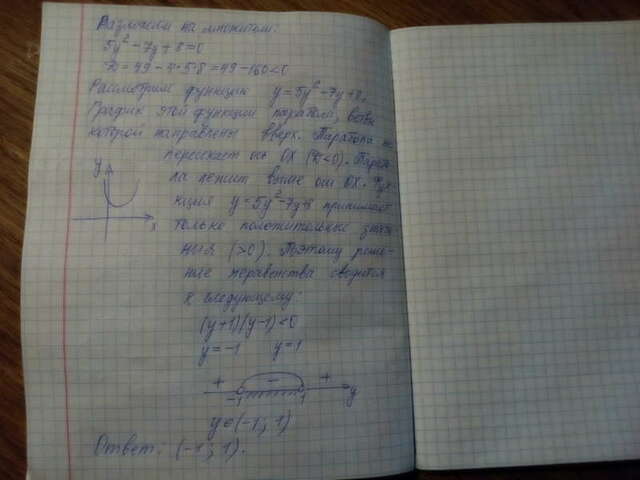 Разложим на множители:
5y²-7y+8=0
D=49-4·5·8=49-160<0
Рассмотрим функцию y=5y²-7y+8.
График этой функции парабола, ветви
которой направлены вверх. Парабола не
пересекает ось OX (D<0). Парабо-
ла лежит выше оси OX. Фун-
кция y=5y²-7y+8 принимает
только положительные значе-
ния (>0). Поэтому реше-
ние неравенства сводится
к следующему:
y
x
(y+1)(y-1)<0
y=-1 y=1
+ - +
-1 1 y
y∈(-1; 1)
Ответ: (-1; 1).